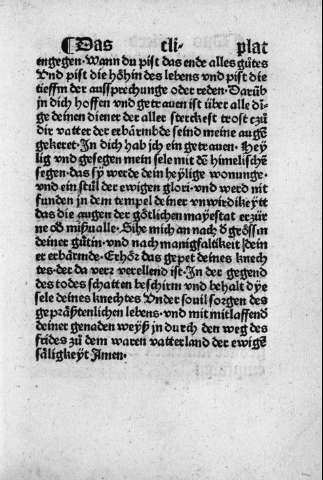 ¶Das cli· plat
entgegen· Wann du pist das ende alles gůtes
Vnd pist die hőhin des lebens vnd pist die
tieffin der aussprechunge oder reden· Darūb
jn dich hoffen vnd getrauen ist über alle di⸗
ge deinen diener der aller sterckest trost czů
dir vatter der erbärmbde seind meine augē
gekeret· In dich hab jch ein getrauen· Hey
lig vnd gesegen mein sele mit dē himelischē
segen· das sy werde dein heylige wonunge·
vnd ein stůl der ewigen glori· vnd werd nit
funden jn dem tempel deiner vnwirdikeytt
das die augen der gőtlichen mayestat erzür
ne Sihe mich an nach d̕ grőssin
deiner gůtin· vnd nach manigfaltikeit dein
er erbärmde· Erhőr das gepet deines knech
tes· der da verr verellend ist· In der gegend
des todes schatten beschirm vnd behalt dye
sele deines knechtes Vnder souil sorgen des
geprästenlichen lebens· vnd mit mitlaffend
deiner genaden weyß jn durch den weg des
frides zů dem waren vatterland der ewigē
säligkeyt Amen·